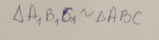 ΔA₁B₁C₁ ~ ΔABC